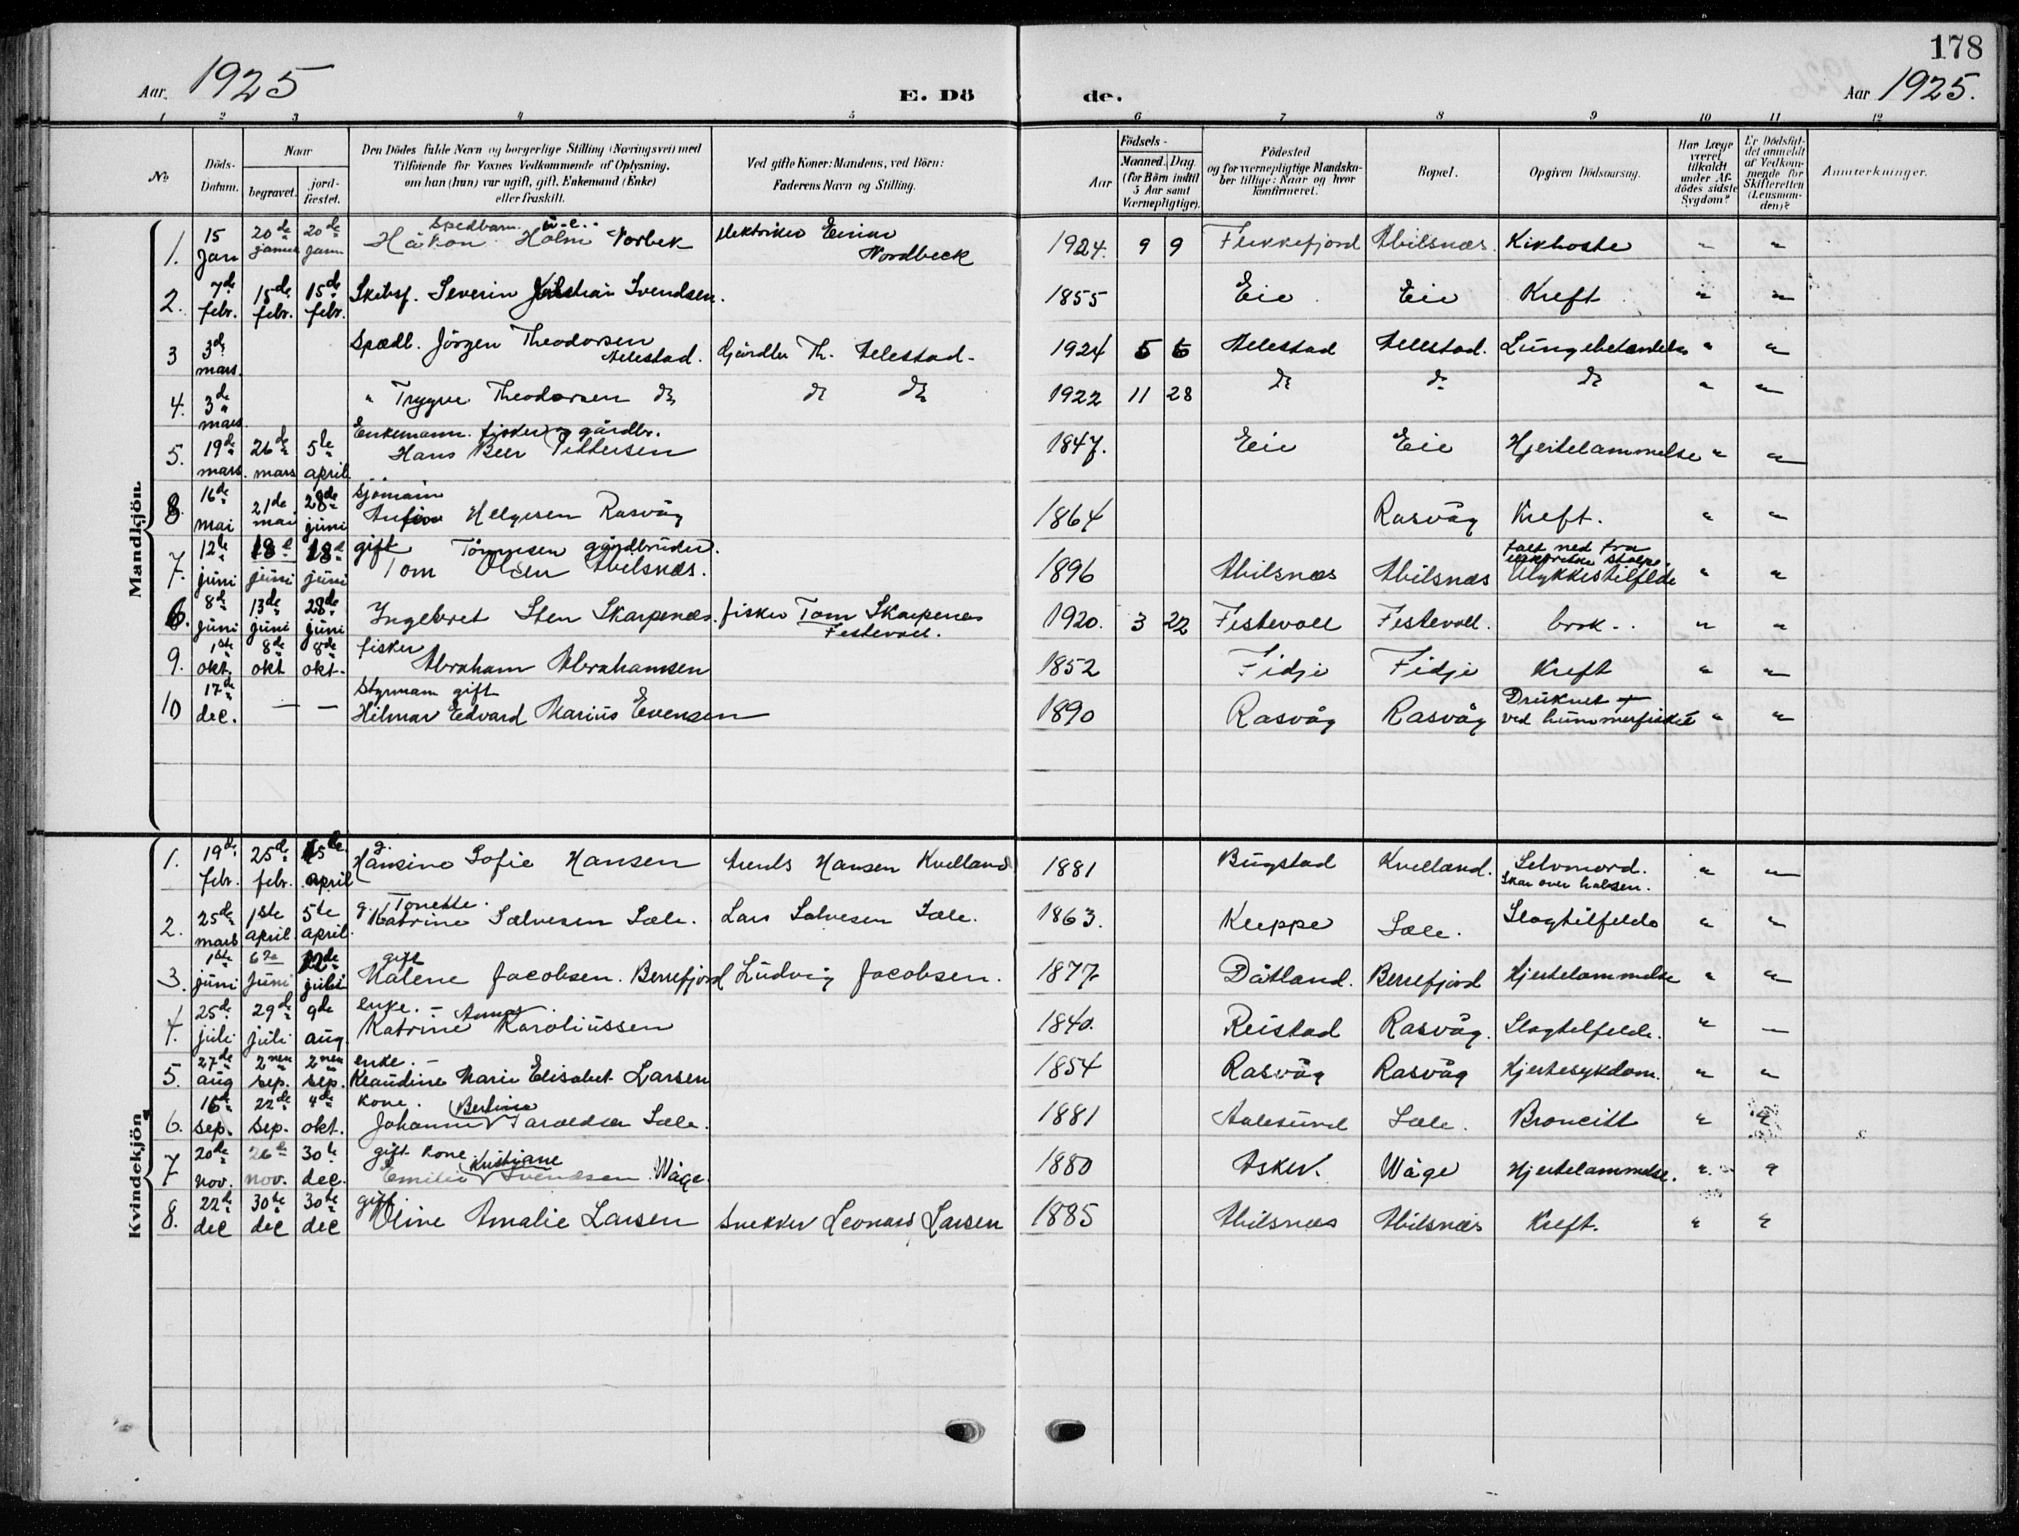 178
Aar. 1925
E. Dö
de.
Aar 1925.
1 2 3 4 5 6 7 8 9 10 11 12
No.
Döds-Datum.
Naar
begravet.
jord-fæstet.
Den Dödes fulde Navn og borgerlige Stilling (Næringsvei) med
Tilföiende for Voxnes Vedkommende af Oplysning,
om han (hun) var ugift, gift, Enkemand (Enke)
eller fraskilt.
Ved gifte Koner: Mandens, ved Börn:
Faderens Navn og Stilling.
Aar
Födsels-
Maaned. Dag
(for Börn indtil
5 Aar samt
Værnepligtige).
Födested
og for værnepligtige Mandska-
ber tillige: Naar og hvor
konfirmeret.
Bopæl.
Opgiven Dödsaarsag.
Har Læge
været
tilkaldt
under Af-
dödes sidste
Sygdom?
Er Dödsfal-
det anmeldt
af Vedkom-
mende for
Skifteretten
(Lensman-
den)?
Anmærkninger.
Mandkjön.
1. 15 Jan 20de januar 20de janr. Spedbarn u.e. Håkon Holm Norbek elektriker Einar Nordbeck 1924. 9 9 Flekkefjord Abilsnæs. Kikhoste " "
2. 7de febr. 15de febr. 15de febr. Skibsf. Severin Kristian Svendsen. 1855 Eie Eie Kreft " "
3 3de mars. Spædb. Jörgen Theodorsen Helestad. Gårdbr Th. Helestad- 1924 5 6 Helestad Helestad. Lungebetændelse " "
4. 3de mars " Trygve Theodorsen do do do 1922 11 28 do do do " "
5. 19de mars. 26de mars 5te april Enkemann. fisker og gårdbr. Hans Peer Pettersen 1847. Eie Eie Hjertelammelse " "
8. 16de mai 21de mai 28de juni Sjömann Anfinn Helgesen Rasvåg 1864 Rasvåg Kreft. " "
7. 12te juni 18de juni 28de juni gift Tom Tönnesen Olsen gårdbruder. Abilsnæs. 1896 Abilsnæs Abilsnæs falt ned fra elektriske stolpe Ulykkestilfelde " "
6. 8de juni 13de juni 28de juni Ingebret Sten Skarpenæs. fisker Tom Skarpenes Festevoll. 1920. 3 22 Festevoll Festevoll. brok.. " "
9. 1ste okt. 8de okt 8de okt. fisker Abraham Abrahamsen 1852 Fidje Fidje Kreft " "
10 17de dec. — — Styrmann gift Hilmar Edvard Marius Evensen 1890 Rasvåg Rasvåg Druknet + ved hummerfisket " "
Kvindekjön
1. 19de febr. 25de febr. 15de april g. Hansine Sofie Hansen Arents Hansen Kvelland 1881 Bugstad Kvelland. Selvmord. Skar over halsen. " "
2. 25de mars 1ste april 5te april. g. Tonette Katrine Salvesen Sæle. Lars Salvesen Sæle. 1863. Kleppe Sæle. Slagtilfelde " "
3. 1ste juni 6te juni 12de juli gift Malene Jacobsen. Berrefjord Ludvig Jacobsen. 1877 Dåtland. Berrefjord Hjertelammelse " "
4. 25de juli 29de juli 9de aug. enke. — Katrine Karoliussen 1840. Reistad Rasvåg. Slagtilfelde. " —
5. 27de aug 2nen sep. 2nen sep. enke. — Klaudine Marie Elisabet Larsen 1854 Rasvåg Rasvåg Hjertesykdom. " "
6. 16de sep. 22de sep. 4de okt. kone. Johanne Berlina Taraldsen Sæle. 1881 Aalesund Sæle. Broncitt " "
7 20de nov. 26de nov. 30te dec. gift kone Emilie Kristiane Svendsen Wåge. 1880 Asker. Wåge Hjertelammelse. " "
8. 22de dec 30te dec 30te dec gift. Oline Amalie Larsen Snekker Leonard Larsen 1885 Abilsnæs Abilsnæs Kreft. " "